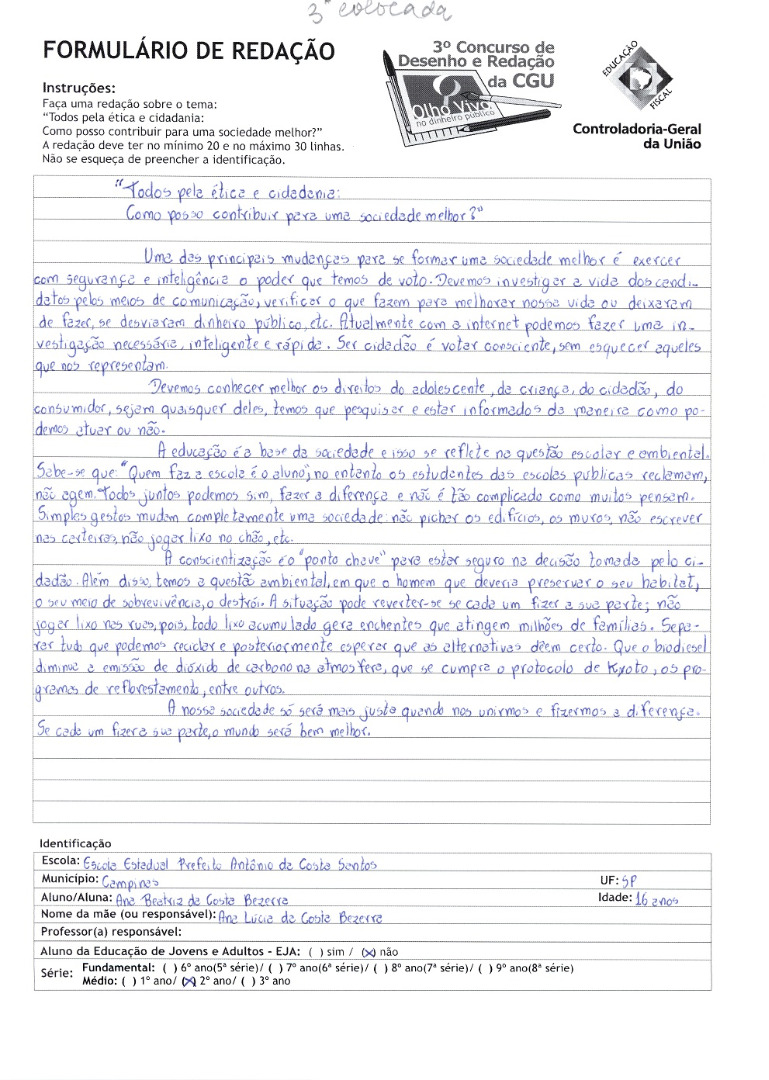 3ª colocada
FORMULÁRIO DE REDAÇÃO
Instruções:
Faça uma redação sobre o tema:
"Todos pela ética e cidadania:
Como posso contribuir para uma sociedade melhor?"
A redação deve ter no mínimo 20 e no máximo 30 linhas.
Não se esqueça de preencher a identificação.
3º Concurso de
Desenho e Redação
da CGU
Olho Vivo
no dinheiro público
EDUCAÇÃO
FISCAL
Controladoria-Geral
da União
"Todos pela ética e cidadania:
Como posso contribuir para uma sociedade melhor?"
Uma das principais mudanças para se formar uma sociedade melhor é exercer
com segurança e inteligência o poder que temos de voto. Devemos investigar a vida dos candi-
datos pelos meios de comunicação, verificar o que fazem para melhorar nossa vida ou deixaram
de fazer, se desviaram dinheiro público, etc. Atualmente com a internet podemos fazer uma in-
vestigação necessária, inteligente e rápida. Ser cidadão é votar consciente, sem esquecer aqueles
que nos representam.
Devemos conhecer melhor os direitos do adolescente, da criança, do cidadão, do
consumidor, sejam quaisquer deles, temos que pesquisar e estar informados da maneira como po-
demos atuar ou não.
A educação é a base da sociedade e isso se reflete na questão escolar e ambiental.
Sabe-se que "Quem faz a escola é o aluno", no entanto os estudantes das escolas públicas reclamam,
não agem. Todos juntos podemos sim, fazer a diferença e não é tão complicado como muitos pensam.
Simples gestos mudam completamente uma sociedade: não pichar os edifícios, os muros, não escrever
nas carteiras, não jogar lixo no chão, etc.
A conscientização é o "ponto chave" para estar seguro na decisão tomada pelo ci-
dadão. Além disso, temos a questão ambiental, em que o homem que deveria preservar o seu habitat,
o seu meio de sobrevivência, o destrói. A situação pode reverter-se se cada um fizer a sua parte; não
jogar lixo nas ruas, pois, todo lixo acumulado gera enchentes que atingem milhões de famílias. Sepa-
rar tudo que podemos reciclar e posteriormente esperar que as alternativas dêem certo. Que o biodiesel
diminua a emissão de dióxido de carbono na atmosfera, que se cumpra o protocolo de Kyoto, os pro-
gramas de reflorestamento, entre outros.
A nossa sociedade só será mais justa quando nos unirmos e fizermos a diferença.
Se cada um fizer a sua parte, o mundo será bem melhor.
Identificação
Escola: Escola Estadual Prefeito Antônio da Costa Santos
Município: Campinas UF: SP
Aluno/Aluna: Ana Beatriz da Costa Bezerra Idade: 16 anos
Nome da mãe (ou responsável): Ana Lúcia da Costa Bezerra
Professor(a) responsável:
Aluno da Educação de Jovens e Adultos - EJA: ( ) sim / (x) não
Série: Fundamental: ( ) 6º ano(5ª série)/ ( ) 7º ano(6ª série)/ ( ) 8º ano(7ª série)/ ( ) 9º ano(8ª série)
Médio: ( ) 1º ano/ (x) 2º ano/ ( ) 3º ano